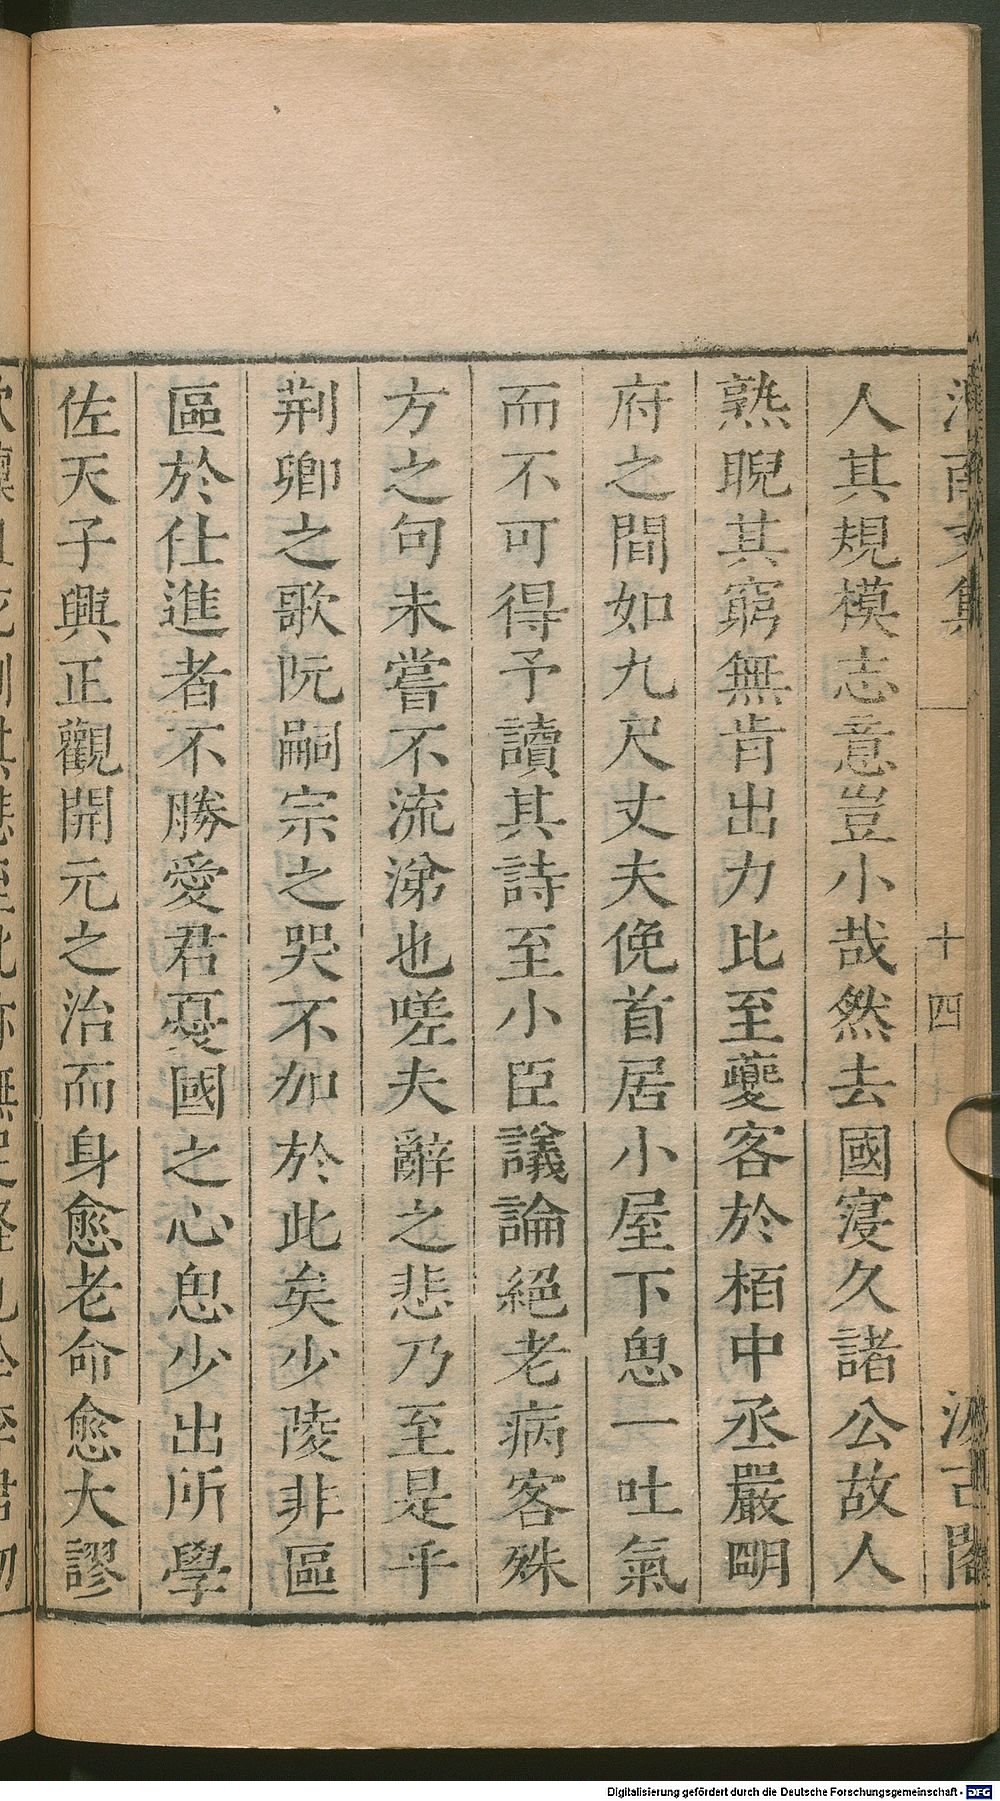 人其規模志意豈小哉然去國寖久諸公故人
熟睨其窮無肯出力比至夔客於栢中丞嚴明
府之間如九尺丈夫俛首居小屋下思一吐氣
而不可得予讀其詩至小臣議論絕老病客殊
方之句未嘗不流涕也嗟夫辭之悲乃至是乎
荆卿之歌阮嗣宗之哭不加於此矣少陵非區
區於仕進者不勝愛君憂國之心思少出所學
佐天子興正觀開元之治而身愈老命愈大謬
十四
汲古閣
Digitalisierung gefördert durch die Deutsche Forschungsgemeinschaft - DFG